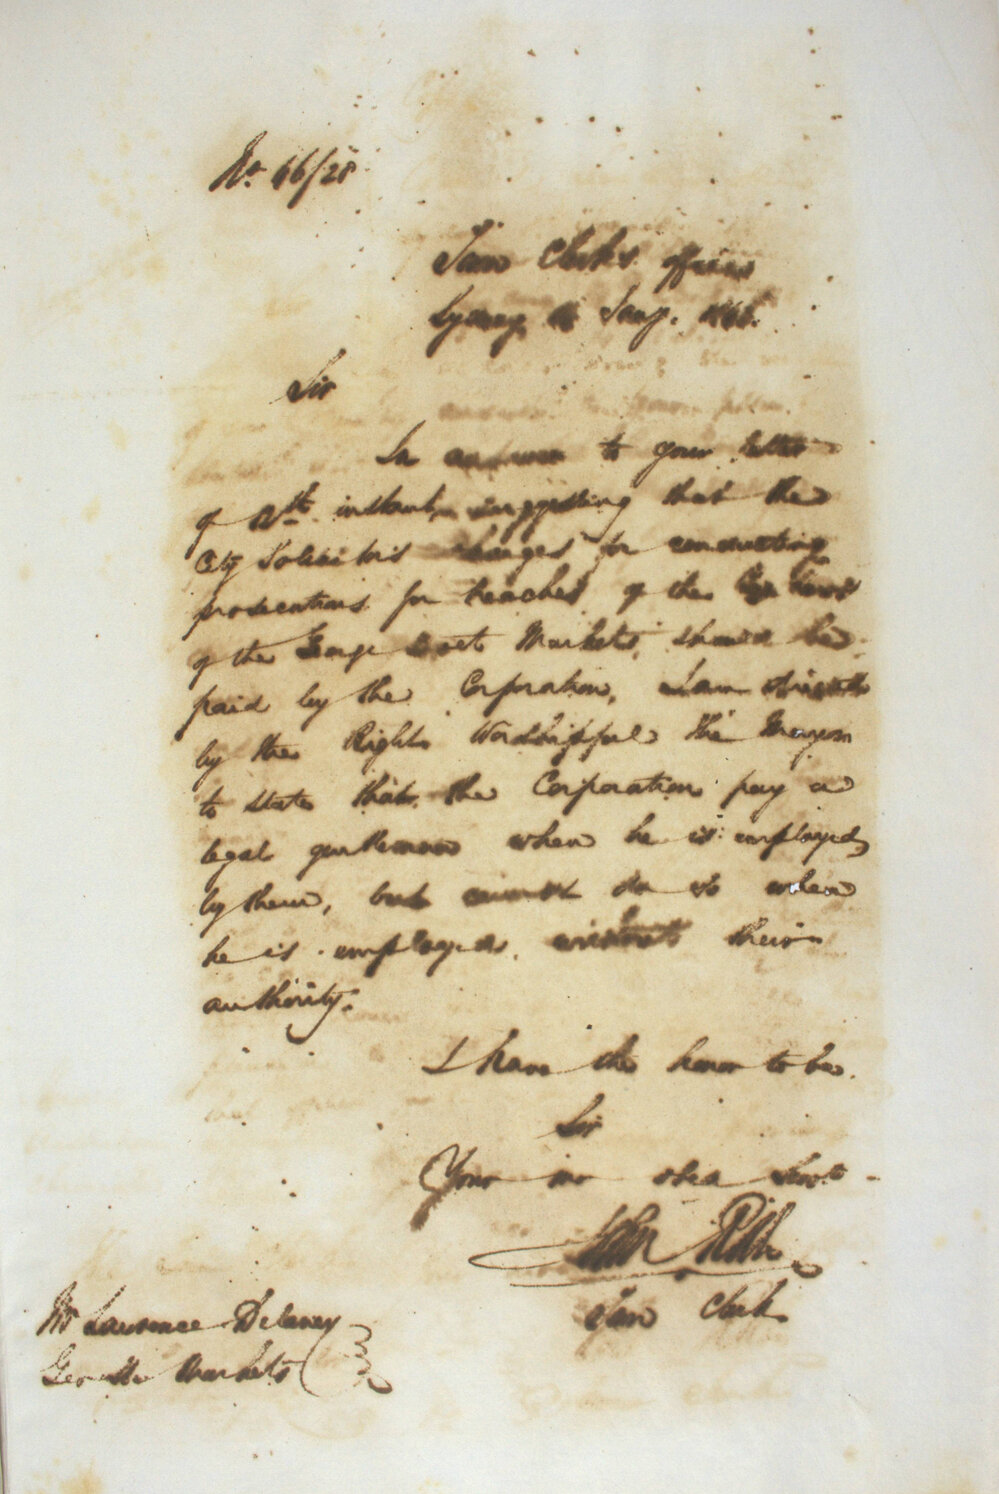 No. 66/28
Town Clerk's office
Sydney Jany. 1866.
Sir
In answer to your letter
of 12th instant, suggesting that the
City Solicitors charges for conducting
prosecutions for breaches of the Bye Laws
of the George Street Markets, should be
paid by the Corporation, I am directed
by the Right Worshipful The Mayor
to state that the Corporation pay a
legal gentleman when he is employed
by them, but cannot do so when
he is employed, without their
authority.
I have the honor to be.
Sir
Your mo obed Servt.
Town Clerk
Mr Lawrence Delaney
Geo St Markets